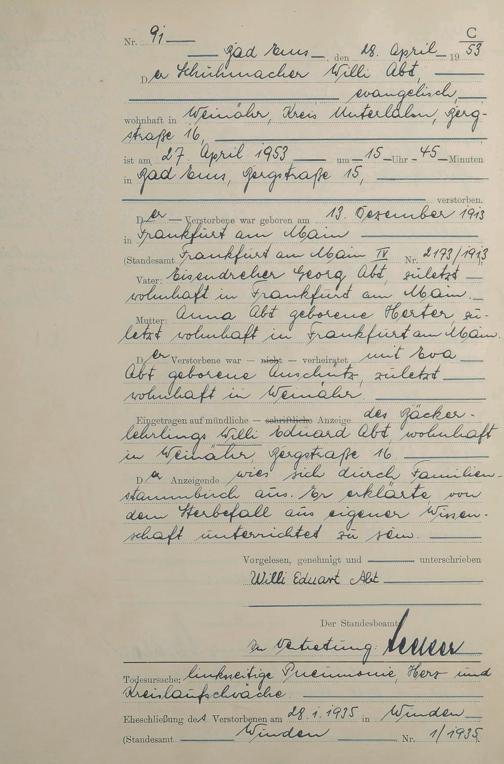 C
Nr. 91
53
Bad Ems, den 28. April 19
Der Schuhmacher Willi Abt,
evangelisch,
wohnhaft in Weinähr, Kreis Unterlahn, Berg-
straße 16,
ist am 27. April 1953 um 15 Uhr 45 Minuten
in Bad Ems, Bergstraße 15,
verstorben.
Der Verstorbene war geboren am 13. Dezember 1913
in Frankfurt am Main
(Standesamt Frankfurt am Main IV Nr. 2173/1913
Vater: Eisendreher Georg Abt, zuletzt
wohnhaft in Frankfurt am Main.
Mutter: Anna Abt geborene Herter zu-
letzt wohnhaft in Frankfurt am Main.
Der Verstorbene war — nicht — verheiratet mit Eva
Abt geborene Anschütz, zuletzt
wohnhaft in Weinähr.
Eingetragen auf mündliche — schriftliche Anzeige des Bäcker-
lehrlings Willi Eduard Abt, wohnhaft
in Weinähr, Bergstraße 16
Der Anzeigende wies sich durch Familien-
stammbuch aus. Er erklärte von
dem Sterbefall aus eigener Wissen-
schaft unterrichtet zu sein.
Vorgelesen, genehmigt und unterschrieben
Willi Eduart Abt
Der Standesbeamte
In Vertretung:
Todesursache: linksseitige Pneumonie, Herz und
Kreislaufschwäche.
Eheschließung des Verstorbenen am 28.1.1935 in Winden
(Standesamt Winden Nr. 1/1935